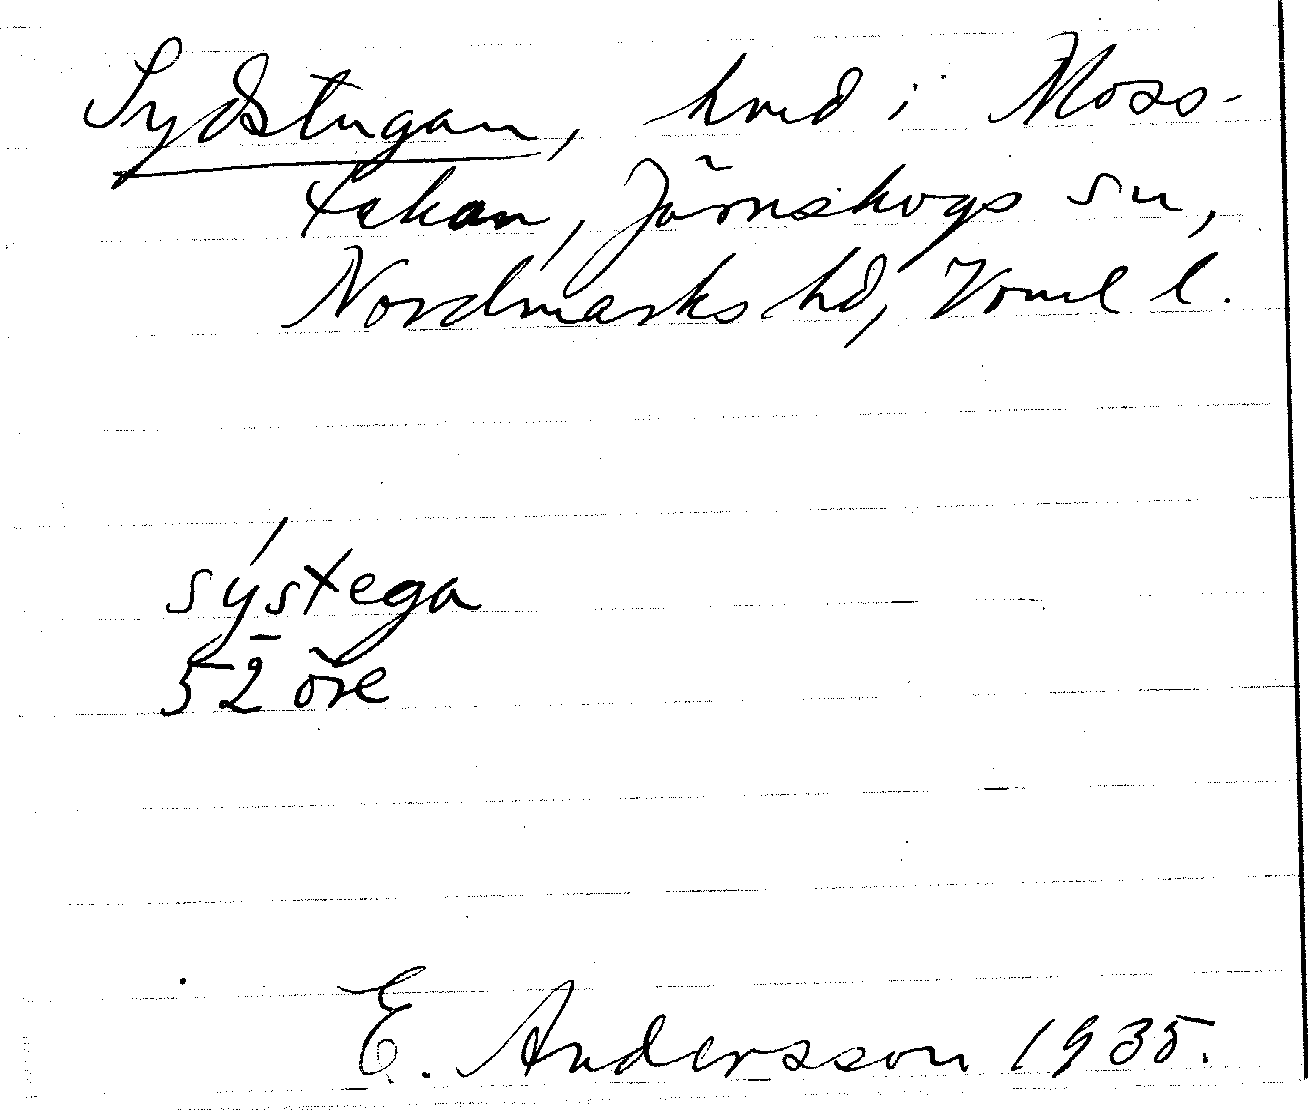 Sydstugan, hmd i Moss-
takan, Järnskogs sn,
Nordmarks hd, Vrml l.
sýstega
52 öre
E. Andersson 1935.